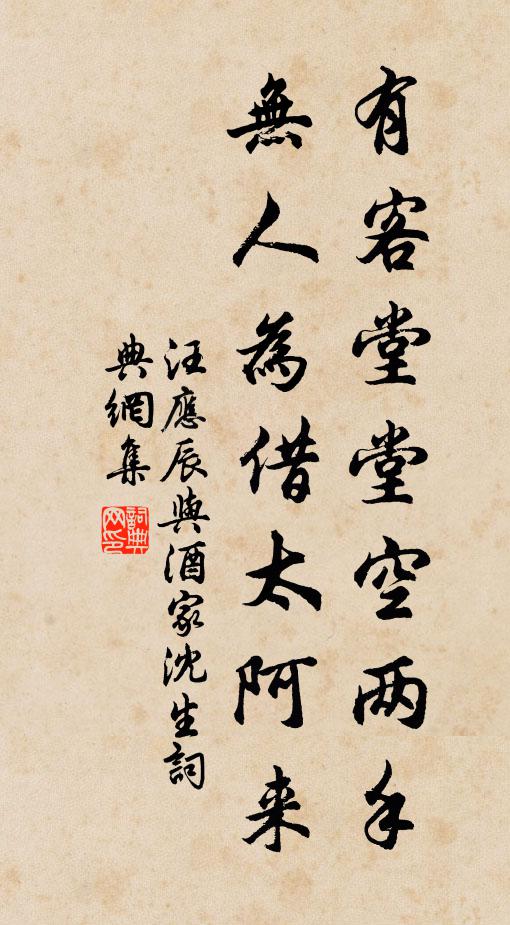 有客堂堂空两手
無人為借太阿来
汪應辰與酒家沈生詞
典網集
詞典
网印